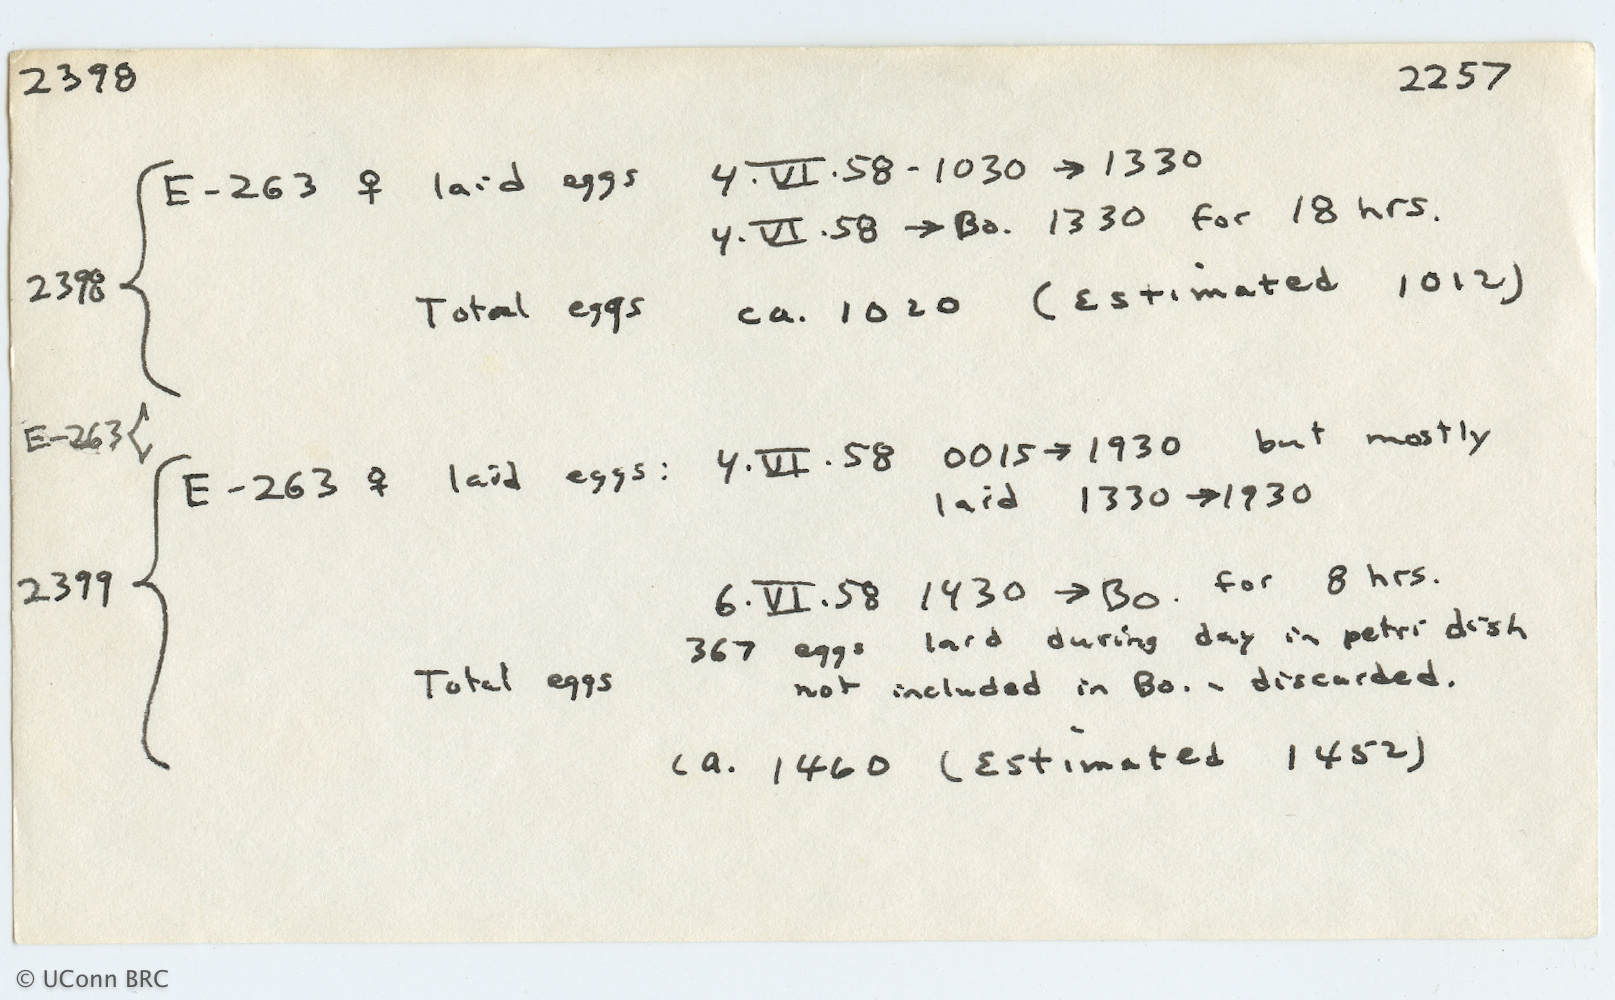 2398 2257
E-263 ♀ laid eggs 4.VI.58-1030 → 1330
4.VI.58 → Bo. 1330 for 18 hrs.
2398
Total eggs ca. 1020 (Estimated 1012)
E-263
E-263 ♀ laid eggs: 4.VI.58 0015 → 1930 but mostly
laid 1330 → 1930
2399
6.VI.58 1430 → Bo. for 8 hrs.
367 eggs laid during day in petri dish
Total eggs not included in Bo. - discarded.
ca. 1460 (Estimated 1452)
© UConn BRC